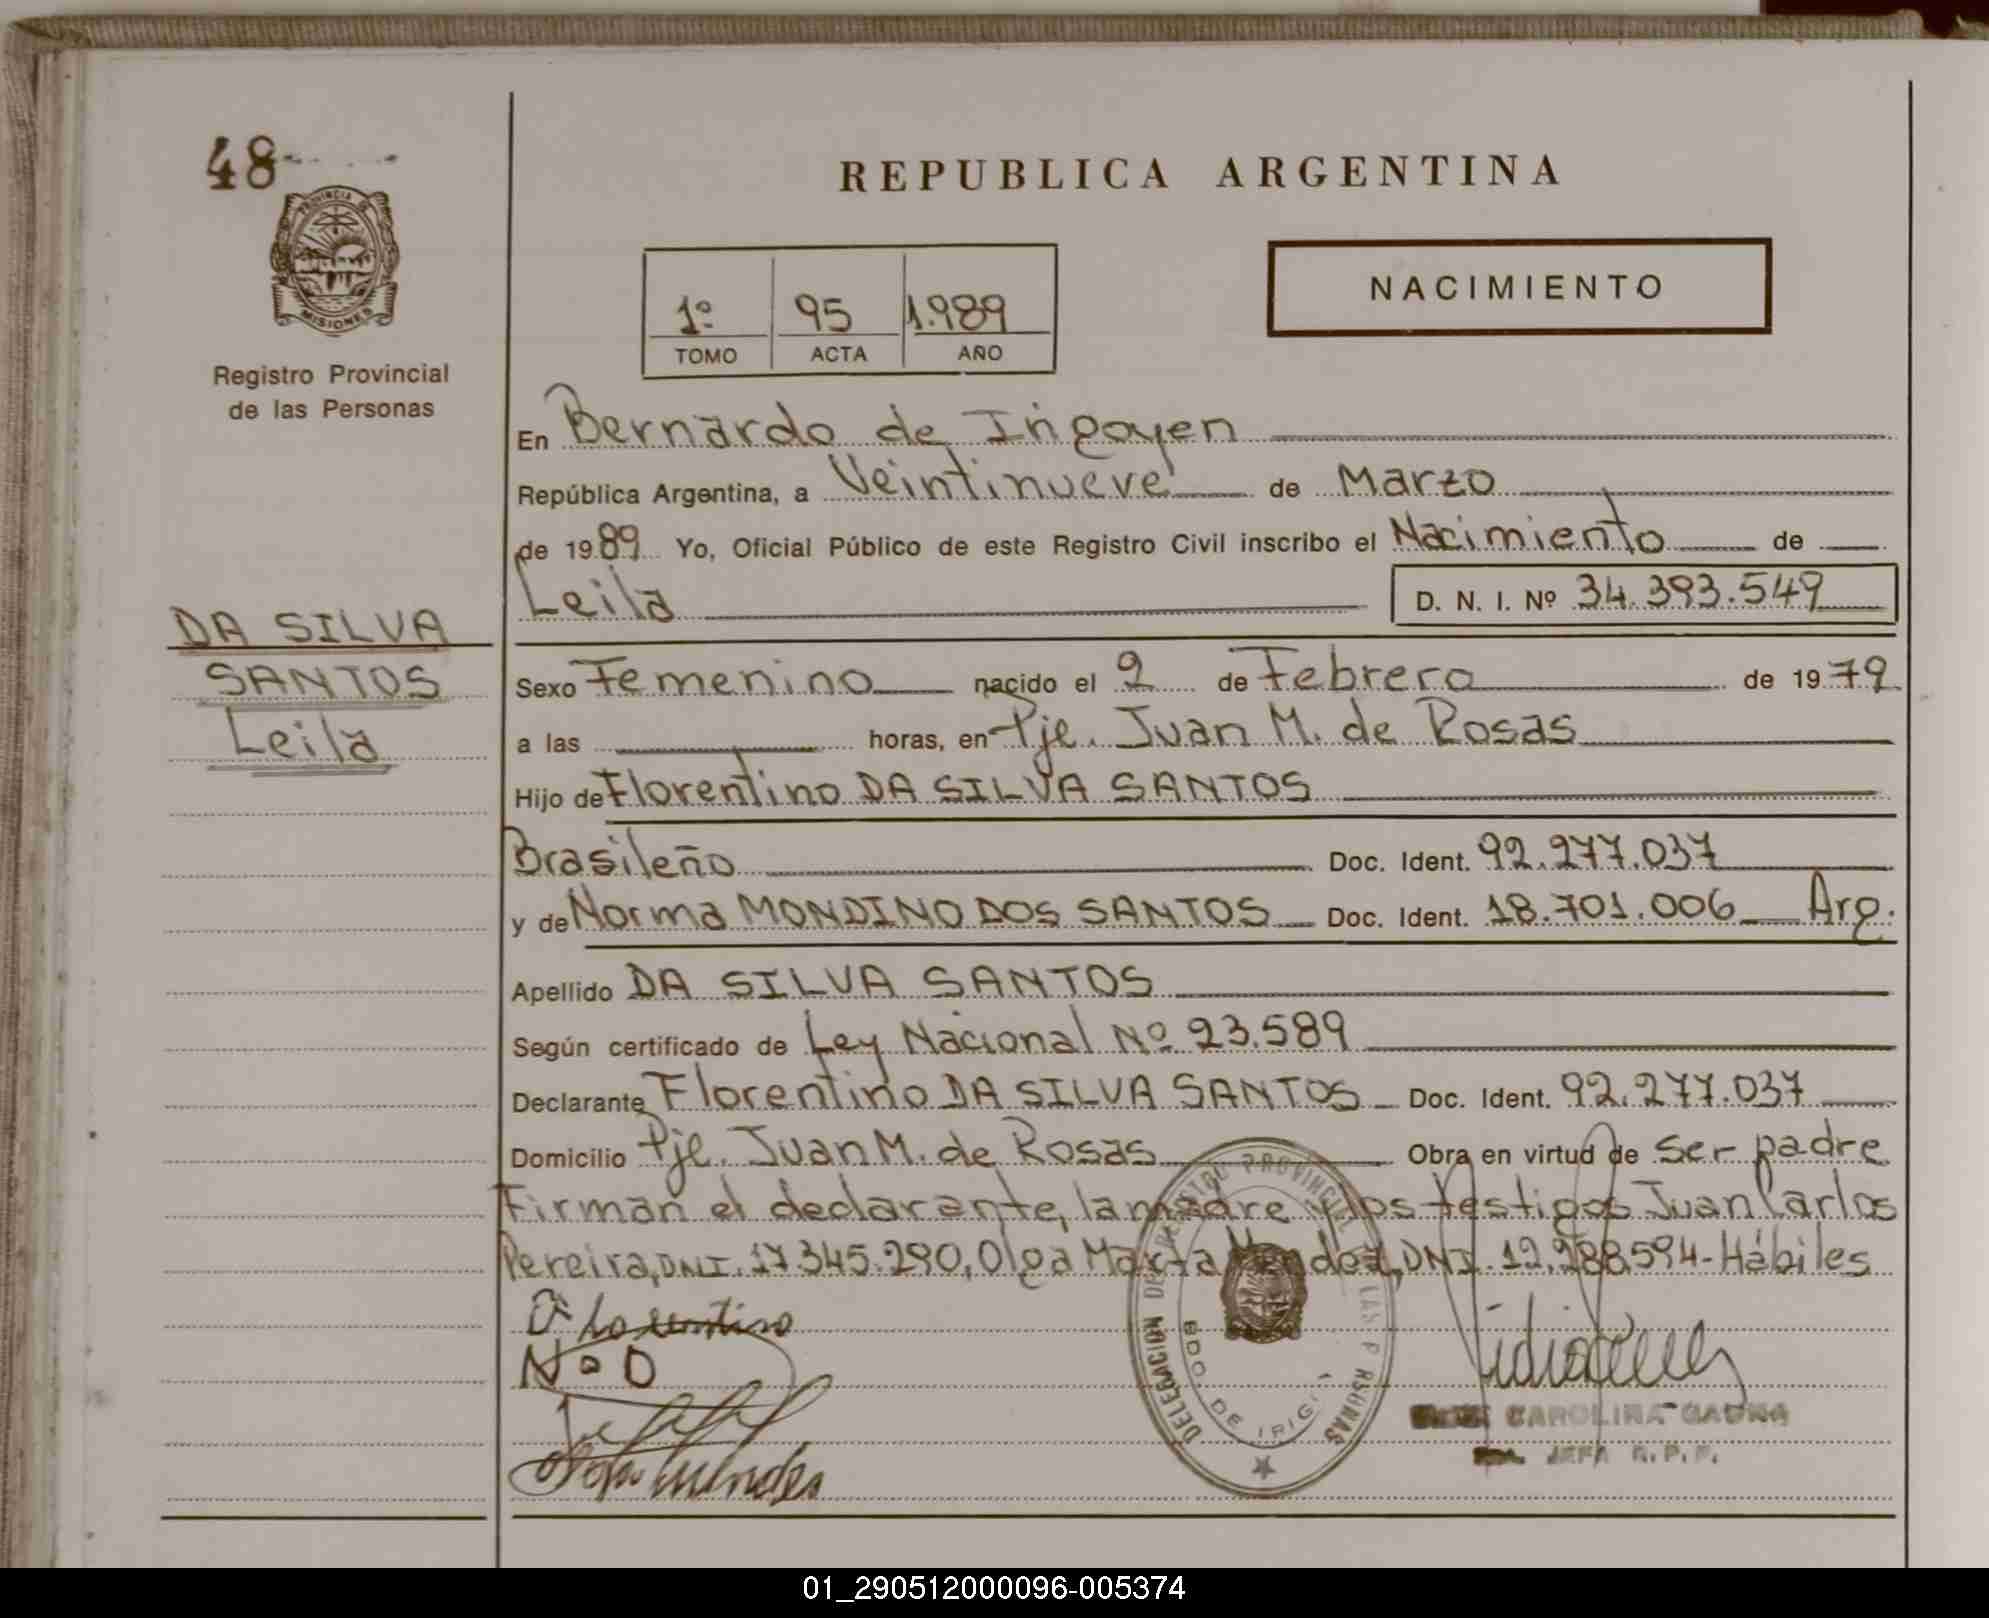 48
PROVINCIA DE
MISIONES
Registro Provincial
de las Personas
DA SILVA
SANTOS
Leila
REPUBLICA ARGENTINA
NACIMIENTO
1º 95 1.989
TOMO ACTA AÑO
En Bernardo de Irigoyen
República Argentina, a Veintinueve de Marzo
de 1989 Yo, Oficial Público de este Registro Civil inscribo el Nacimiento de
Leila D. N. I. Nº 34.393.549
Sexo Femenino nacido el 2 de Febrero de 1979
a las horas, en Pje. Juan M. de Rosas
Hijo de Florentino DA SILVA SANTOS
Brasileño Doc. Ident. 92.277.037
y de Norma MONDINO DOS SANTOS Doc. Ident. 18.701.006 Arg.
Apellido DA SILVA SANTOS
Según certificado de Ley Nacional Nº 23.589
Declarante Florentino DA SILVA SANTOS Doc. Ident. 92.277.037
Domicilio Pje. Juan M. de Rosas Obra en virtud de ser padre
Firman el declarante, la madre y los testigos Juan Carlos
Pereira, DNI. 17.345.290, Olga Marta Mendez, DNI. 12.288.594-Hábiles
DELEGACION DEL REGISTRO PROVINCIAL DE LAS PERSONAS
BDO DE IRIG
CAROLINA GAUNA
JEFA R. P. P.
01_290512000096-005374